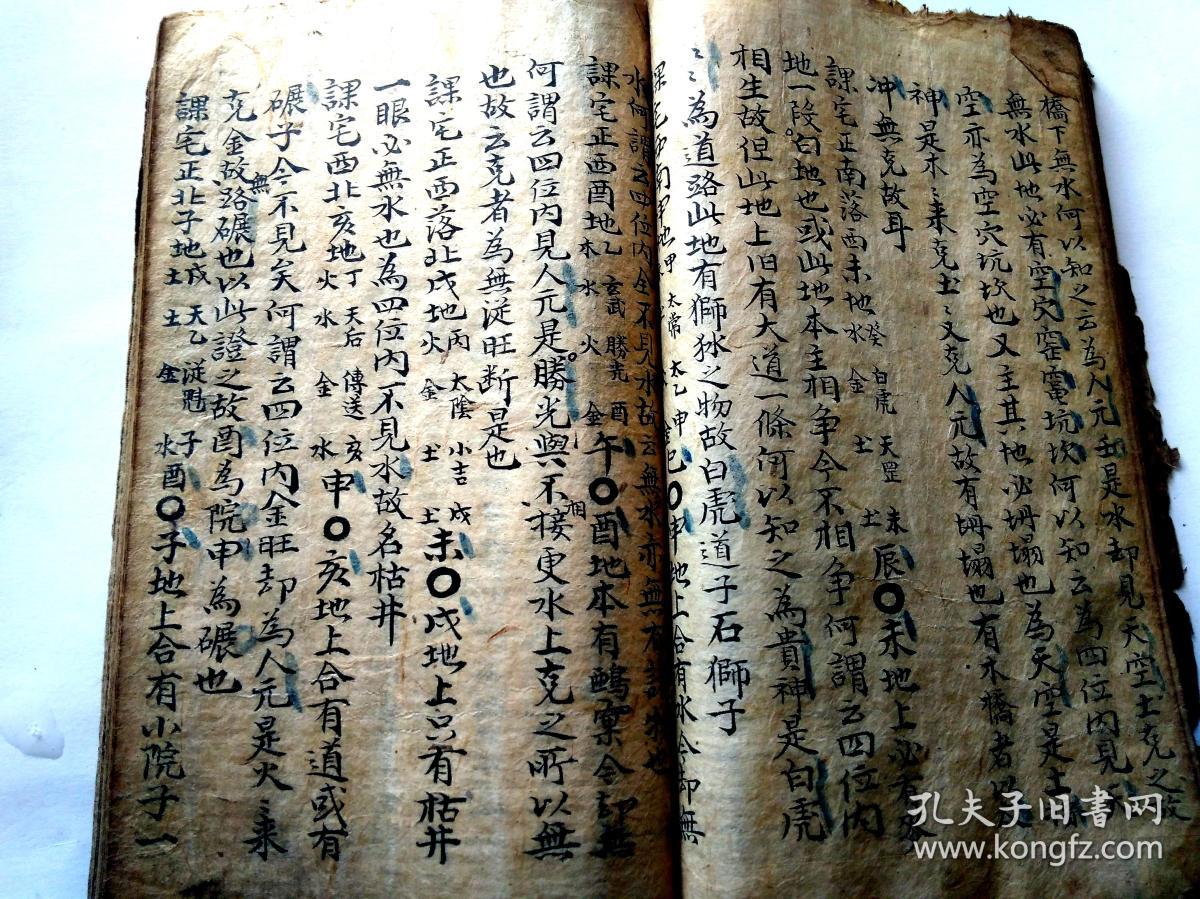 橋下無水何以知之云為人元壬是水却見天空土克之故
無水此地必有空穴窑電坑坎何以知云為四位内見
空亦為空穴坑坎也又主其地必坍塌也為天空是土
神是木〻来克土〻又克人元故有坍塌也有木橋者
冲無克故耳
課宅正南落西未地水癸 金白虎 土天罡 土未 辰〇未地上必有
地一段匂地也或此地本主相争今不相争何謂云四位内
相生故但此地上旧有大道一條何以知之為貴神是白虎
〻〻為道路此地有獅狄之物故白虎道子石獅子
課宅西南申地甲 太常 太乙 申 巳〇申地上合有水今却無
水何謂云四位内全不見水故云無水亦無有
課宅正西酉地乙木 玄武水 勝光火 酉金 午〇酉地本有鷄窠今却無
何謂云四位内見人元是勝光與不相接更水上克之所以無
也故云克者為無淀旺断是也
課宅正西落北戌地丙火 太陰金 小吉土 戌土 未〇戌地上只有枯井
一眼必無水也為四位内不見水故名枯井
課宅西北亥地丁火 天后水 傳送金 亥水 申〇亥地上合有道或有
碾子今不見矣何謂云四位内金旺却為人元是火〻来
克金故無路碾也以此證之故酉為院申為碾也
課宅正北子地戊土 天乙土 淀魁金 子水 酉〇子地上合有小院子一
孔夫子旧書网
www.kongfz.com